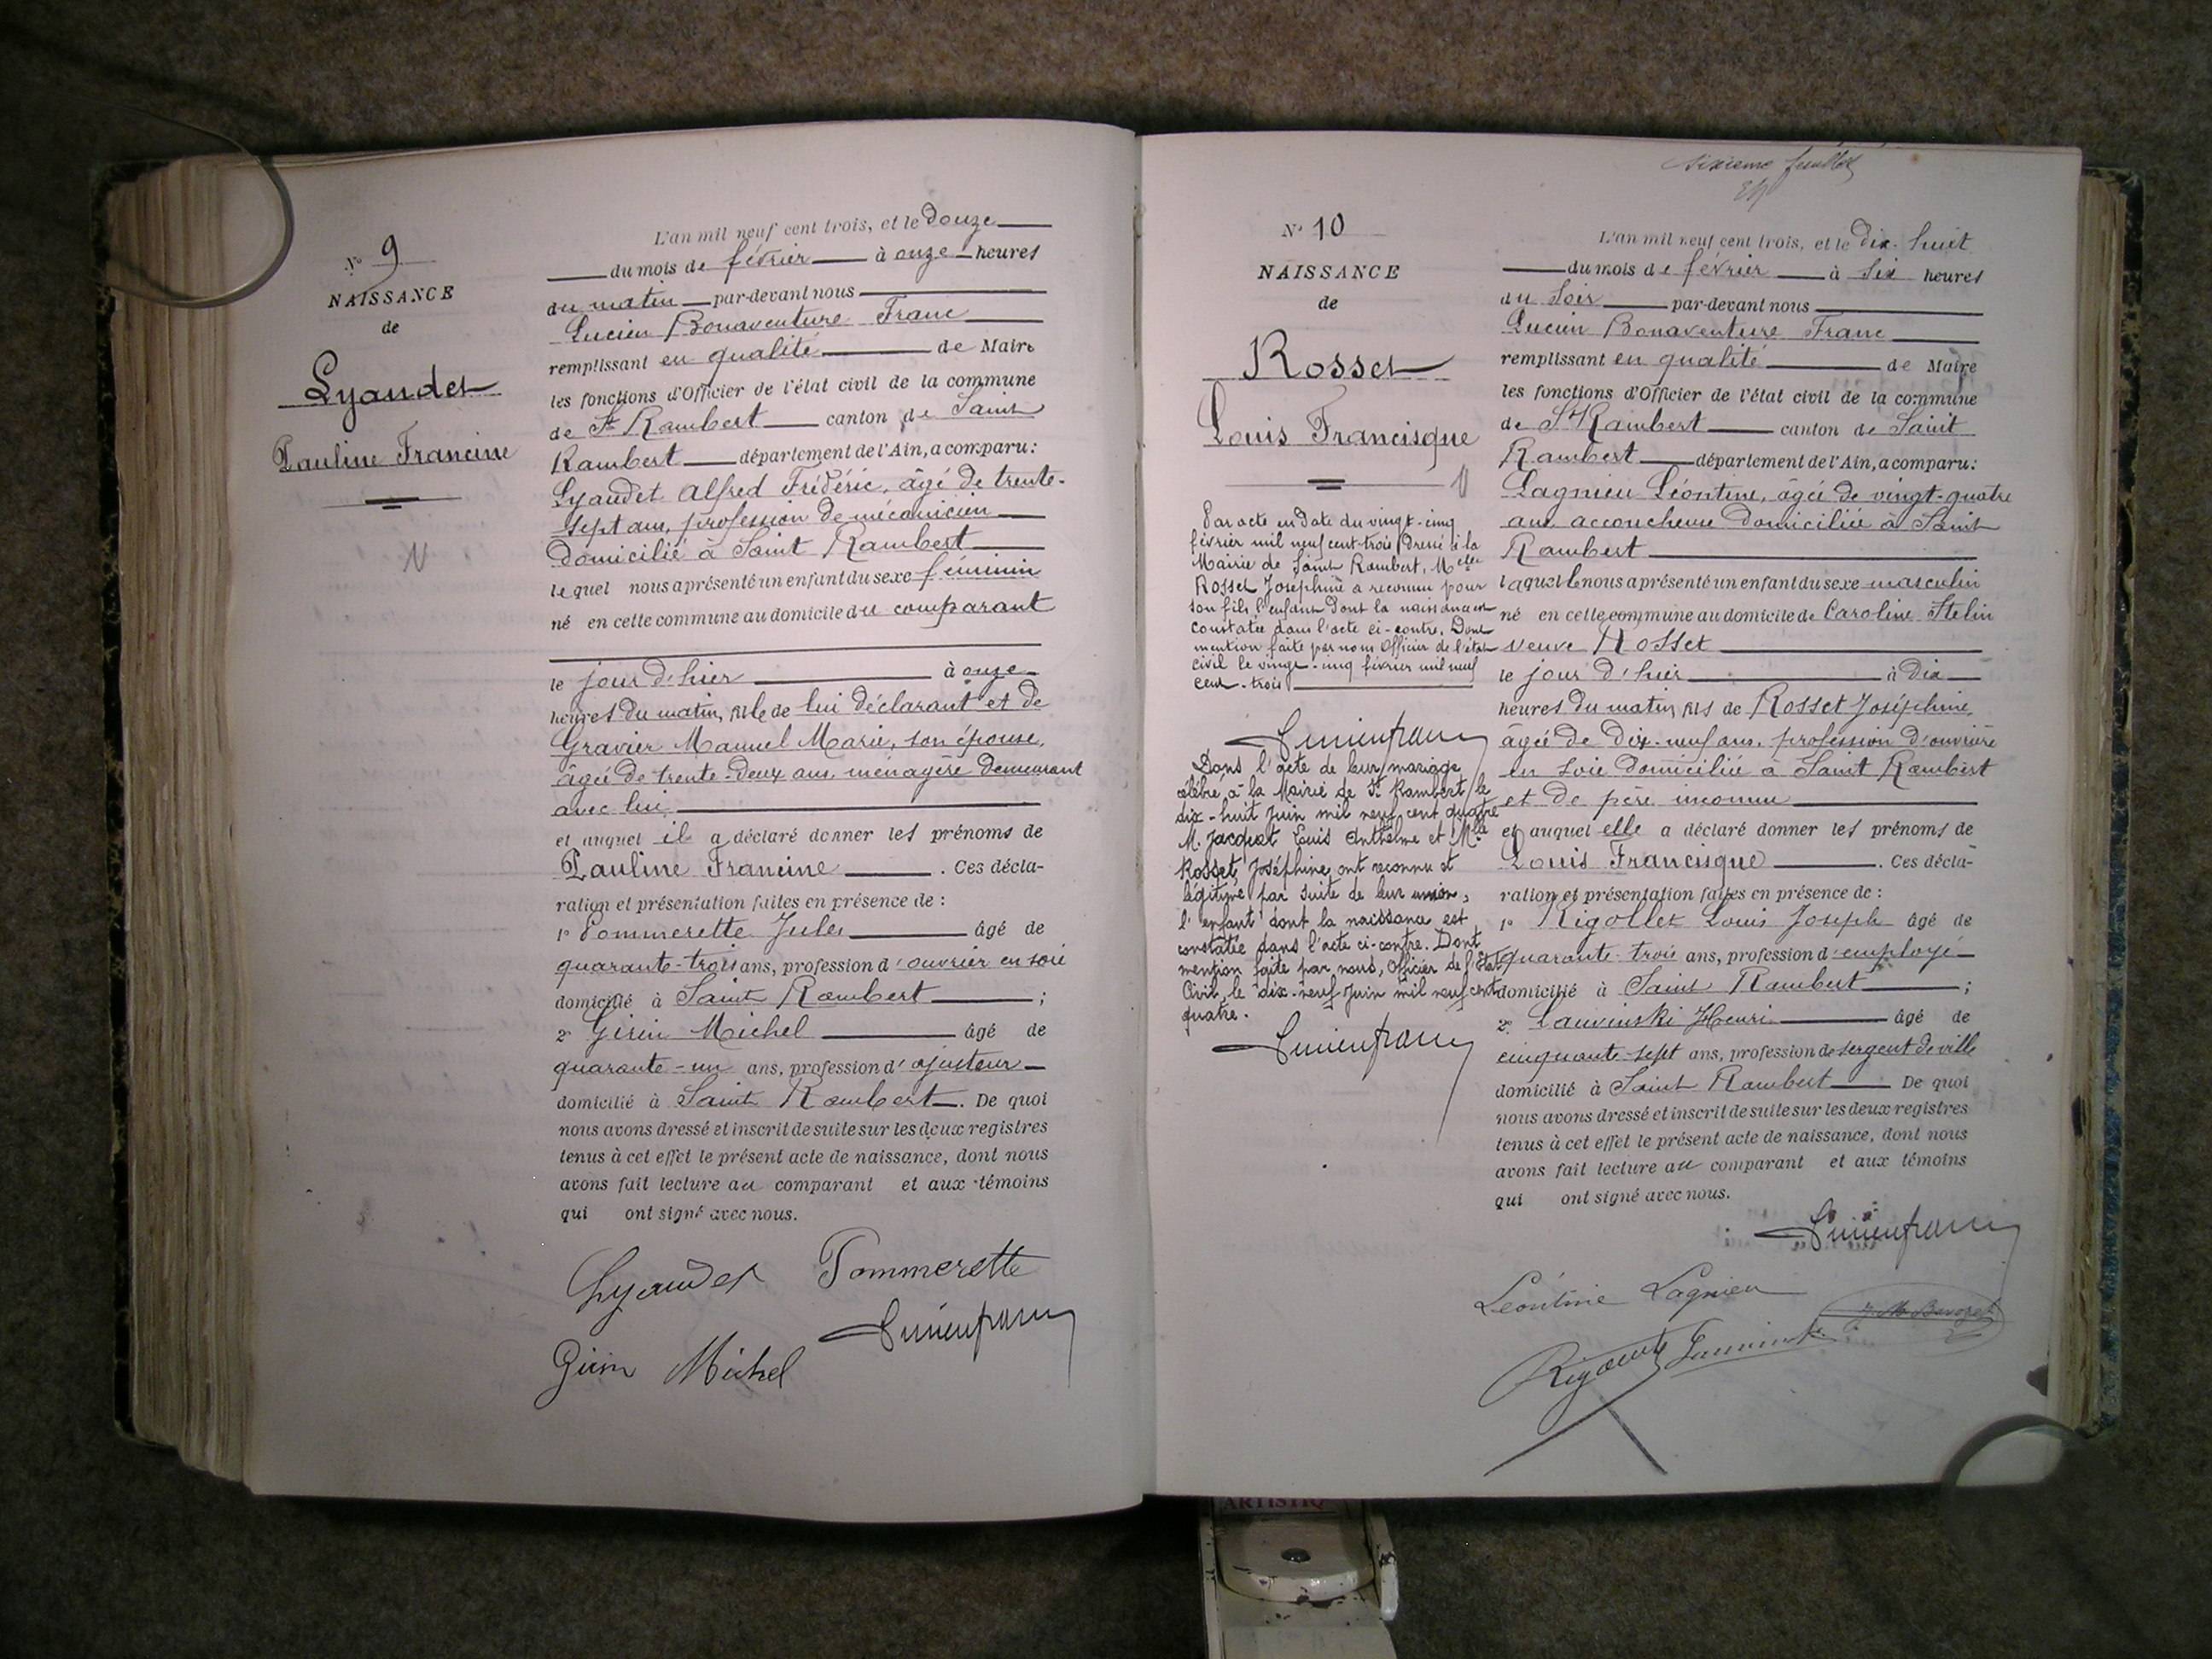 N° 9
NAISSANCE
de
Lyaudet
Pauline Francine
N
L'an mil neuf cent trois, et le douze
du mois de février à onze heures
du matin par-devant nous
Lucien Bonaventure Franc
remplissant en qualité de Maire
les fonctions d'Officier de l'état civil de la commune
de St Rambert canton de Saint
Rambert département de l'Ain, a comparu:
Lyaudet Alfred Frédéric, âgé de trente-
sept ans, profession de mécanicien
domicilié à Saint Rambert
lequel nous a présenté un enfant du sexe féminin
né en cette commune au domicile du comparant
le jour d'hier à onze
heures du matin, fille de lui déclarant et de
Gravier Manuel Marie, son épouse,
âgée de trente-deux ans ménagère demeurant
avec lui,
et auquel il a déclaré donner les prénoms de
Pauline Francine. Ces décla-
ration et présentation faites en présence de :
1° Pommerette Jules âgé de
quarante-trois ans, profession d'ouvrier en soie
domicilié à Saint Rambert ;
2° Girin Michel âgé de
quarante-un ans, profession d'ajusteur
domicilié à Saint Rambert. De quoi
nous avons dressé et inscrit de suite sur les deux registres
tenus à cet effet le présent acte de naissance, dont nous
avons fait lecture au comparant et aux témoins
qui ont signé avec nous.
Lyaudet Pommerette
Lucienfranc
Girin Michel
Sixième feuillet
N° 10
NAISSANCE
de
Rosset
Louis Francisque
N
Par acte en date du vingt-cinq
février mil neuf cent-trois dressé à la
Mairie de Saint Rambert, Melle
Rosset Joséphine a reconnu pour
son fils l'enfant dont la naissance est
constatée dans l'acte ci-contre. Dont
mention faite par nous Officier de l'état
civil le vingt-cinq février mil neuf
cent-trois
Lucienfranc
Dans l'acte de leur mariage
célébré à la Mairie de St Rambert le
dix-huit Juin mil neuf cent quatre
M. Jacquat Louis Anthelme et Mlle
Rosset, Joséphine, ont reconnu et
légitimé par suite de leur union,
l'enfant dont la naissance est
constatée dans l'acte ci-contre. Dont
mention faite par nous, Officier de l'Etat
Civil, le dix-neuf Juin mil neuf cent
quatre.
Lucienfranc
L'an mil neuf cent trois, et le dix-huit
du mois de février à six heures
du soir par-devant nous
Lucien Bonaventure Franc
remplissant en qualité de Maire
les fonctions d'Officier de l'état civil de la commune
de St Rambert canton de Saint
Rambert département de l'Ain, a comparu:
Lagnieu Léontine, âgée de vingt-quatre
ans accoucheuse domiciliée à Saint
Rambert
laquelle nous a présenté un enfant du sexe masculin
né en cette commune au domicile de Caroline Stelin
veuve Rosset
le jour d'hier à dix
heures du matin, fils de Rosset Joséphine,
âgée de dix-neuf ans, profession d'ouvrière
en soie domiciliée à Saint Rambert
et de père inconnu
et auquel elle a déclaré donner les prénoms de
Louis Francisque. Ces décla-
ration et présentation faites en présence de :
1° Rigollet Louis Joseph âgé de
quarante-trois ans, profession d'employé
domicilié à Saint Rambert ;
2° Lauvinski Henri âgé de
cinquante-sept ans, profession de sergent de ville
domicilié à Saint Rambert De quoi
nous avons dressé et inscrit de suite sur les deux registres
tenus à cet effet le présent acte de naissance, dont nous
avons fait lecture au comparant et aux témoins
qui ont signé avec nous.
Lucienfranc
Léontine Lagnieu